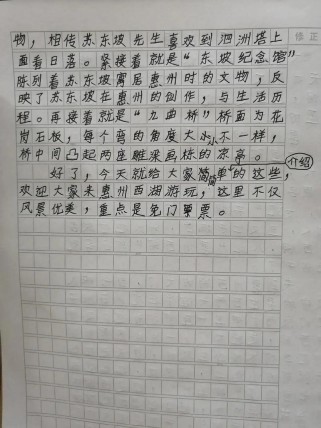 物，相传苏东坡先生喜欢到泗洲塔上
面看日落。紧接着就是“东坡纪念馆”
陈列着苏东坡寓居惠州时的文物，反
映了苏东坡在惠州的创作，与生活历
程。再接着就是“九曲桥”桥面为花
岗石板，每个弯的角度大小不一样，
桥中间凸起两座雕梁画栋的凉亭。
好了，今天就给大家简单介绍的这些，
欢迎大家来惠州西湖游玩，这里不仅
风景优美，重点是免门票票。